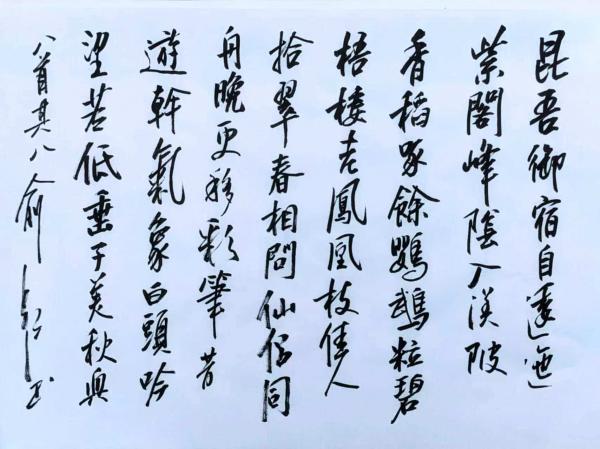 昆吾御宿自逶迤
紫閣峰陰入渼陂
香稻啄餘鸚鵡粒碧
梧棲老鳳凰枝佳人
拾翠春相問仙侶同
舟晚更移彩筆昔
遊幹氣象白頭吟
望苦低垂子美秋興
八首其八俞